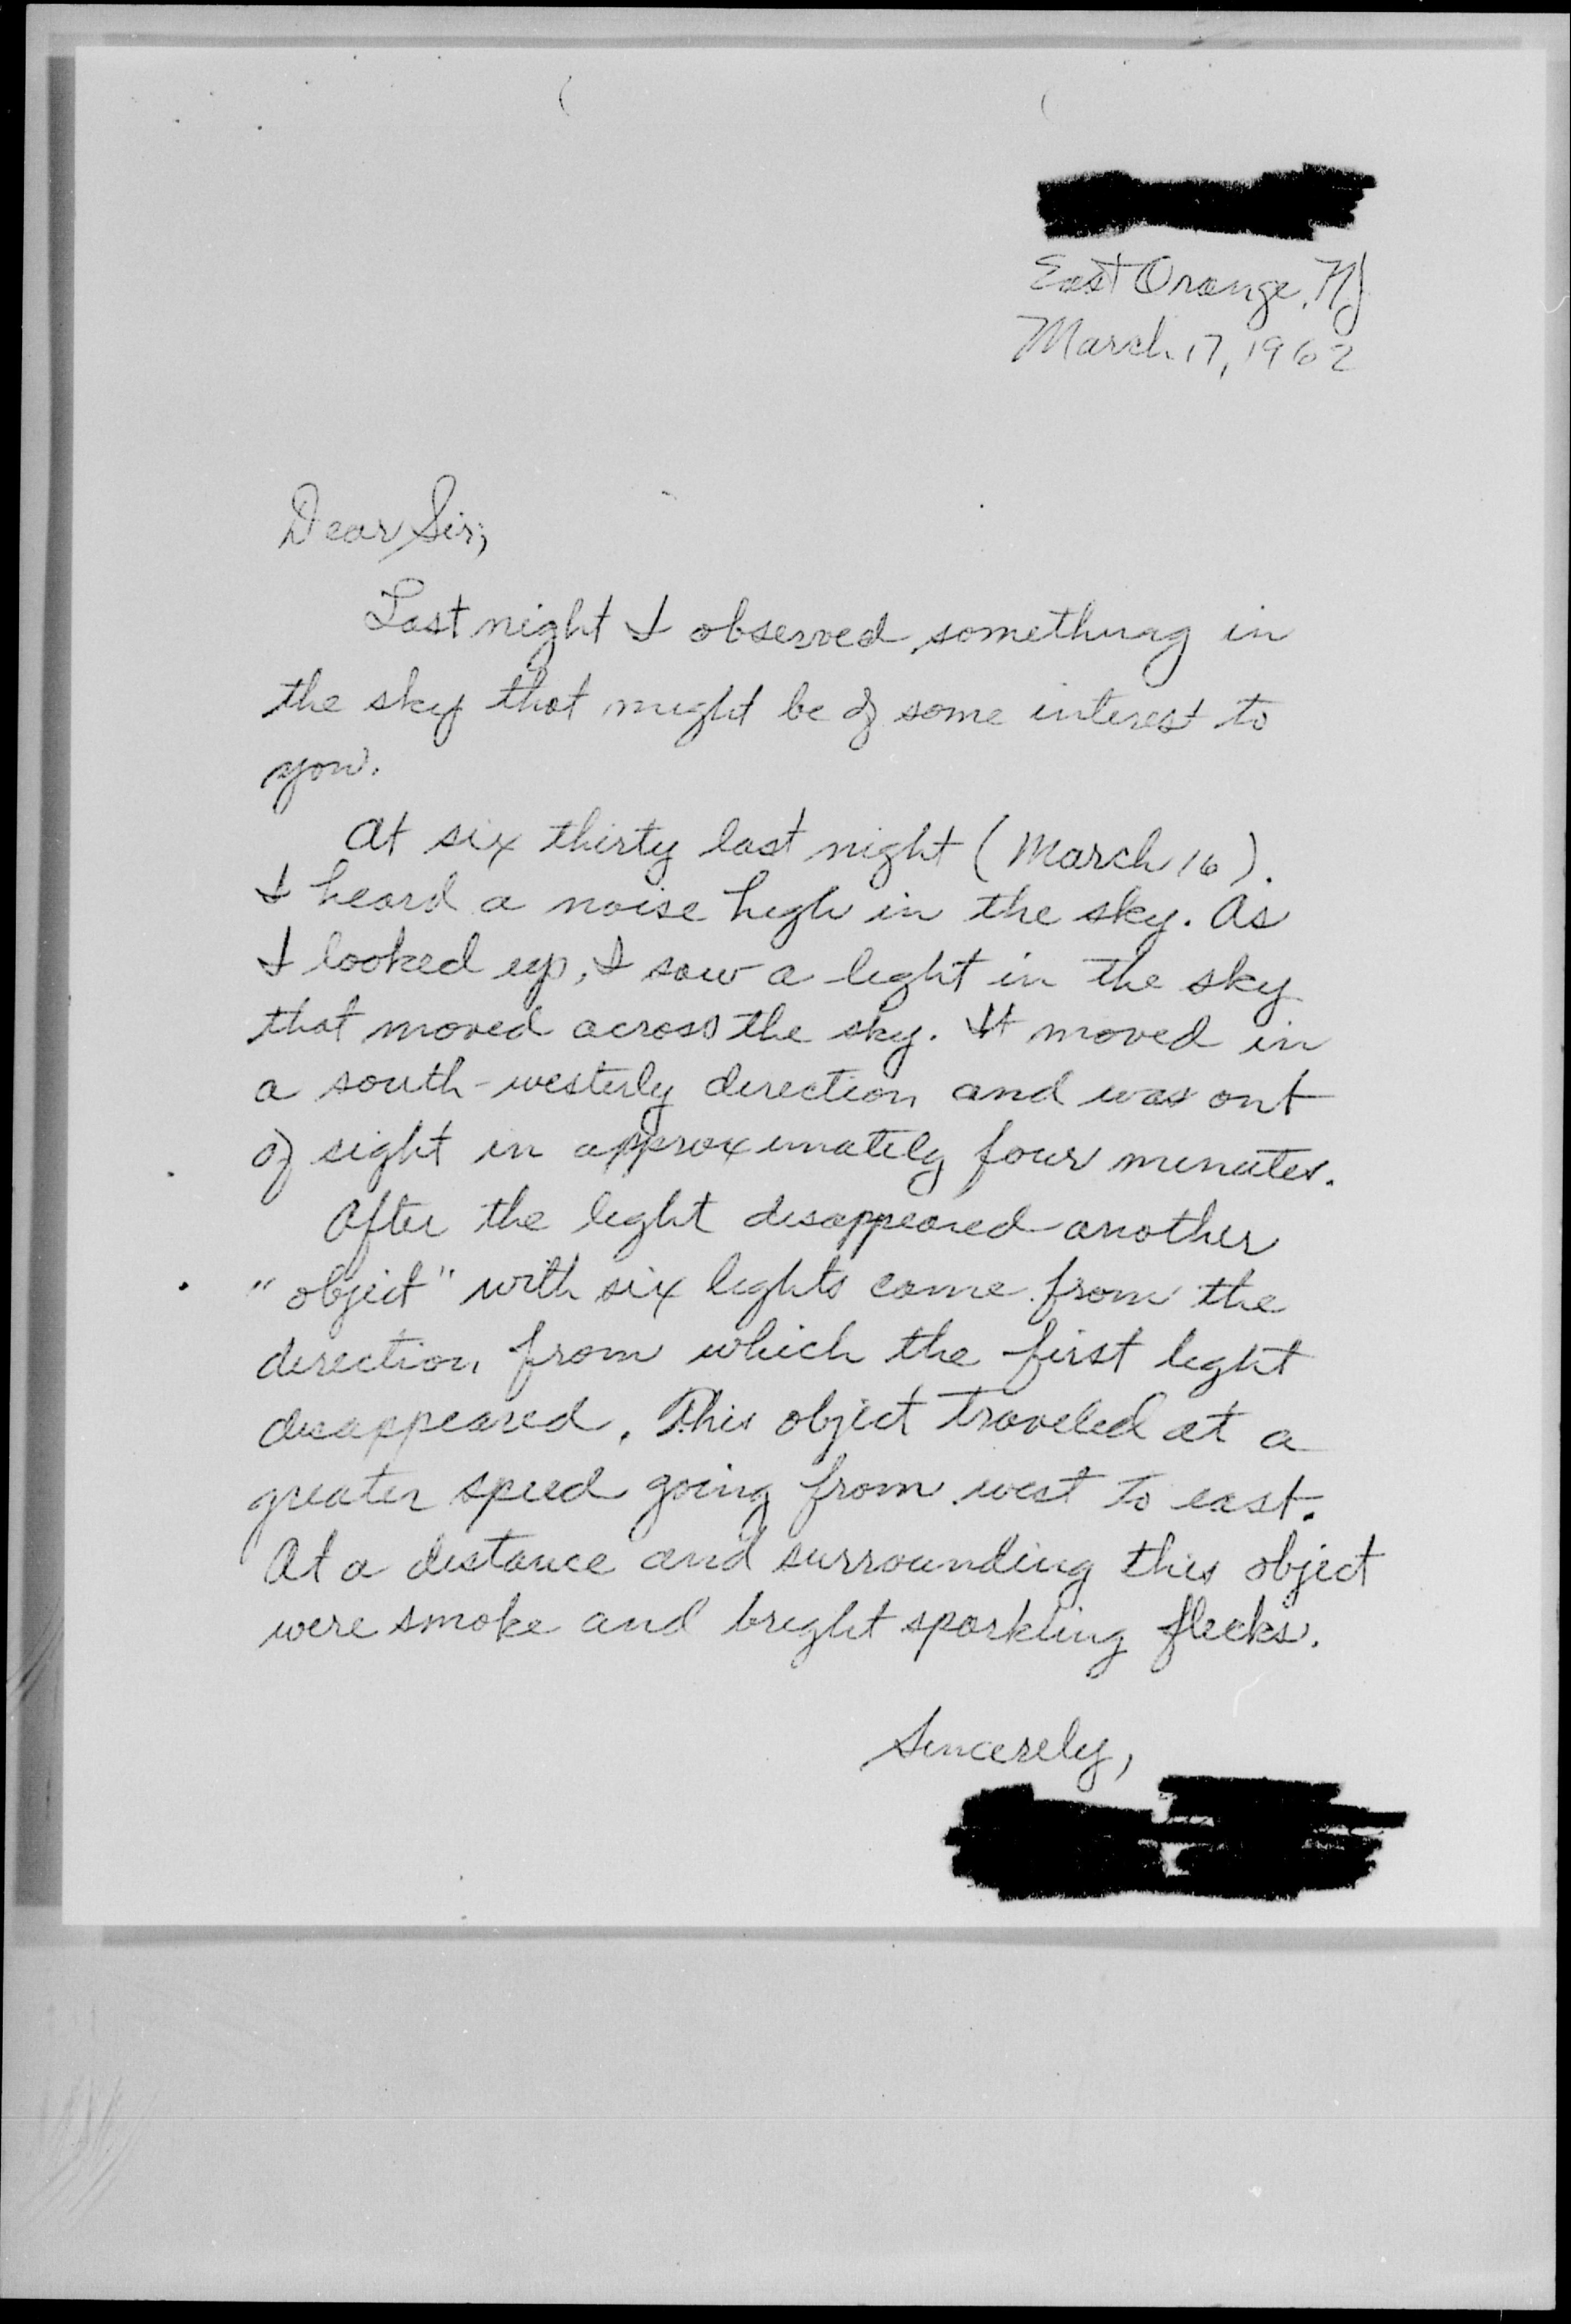 East Orange, NJ
March 17, 1962
Dear Sir;
Last night I observed something in
the sky that might be of some interest to
you.
At six thirty last night (March 16).
I heard a noise high in the sky. As
I looked up, I saw a light in the sky
that moved across the sky. It moved in
a south-westerly direction and was out
of sight in approximately four minutes.
After the light disappeared another
"object" with six lights came from the
direction from which the first light
disappeared. This object traveled at a
greater speed going from west to east.
At a distance and surrounding this object
were smoke and bright sparkling flecks.
Sincerely,